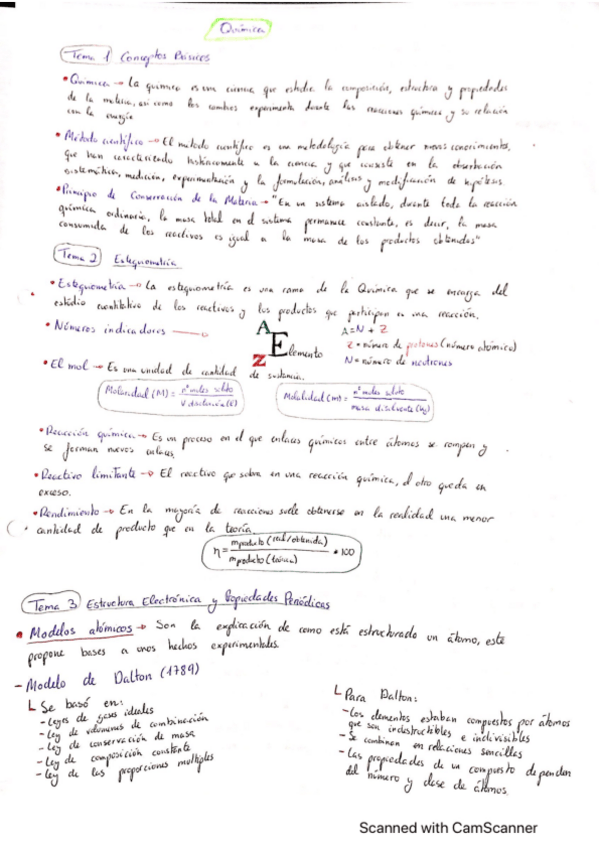 Química
Tema 1 Conceptos Básicos
• Química → La química es una ciencia que estudia la composición, estructura y propiedades
de la materia, así como los cambios experimenta durante las reacciones químicas y su relación
con la energía
• Método científico → El metodo científico es una metodología para obtener nuevos conocimientos,
que han caracterizado históricamente a la ciencia, y que consiste en la observación
sistemática, medición, experimentación y la formulación, análisis y modificación de hipótesis.
• Principio de Conservación de la Materia → "En un sistema aislado, durante toda la reacción
química ordinaria, la masa total en el sistema permanece constante, es decir, la masa
consumida de los reactivos es igual a la masa de los productos obtenidos"
Tema 2 Estequiometría
• Estequiometría → La estequiometría es una rama de la Química que se encarga del
estudio cuantitativo de los reactivos y los productos que participan en una reacción.
• Números indicadores → A Z Elemento
A = N + Z
Z = número de protones (número atómico)
N = número de neutrones
• El mol → Es una unidad de cantidad de sustancia.
Molaridad (M) = nº moles soluto / V disolución (l)
Molalidad (m) = nº moles soluto / masa disolvente (kg)
• Reacción química → Es un proceso en el que enlaces químicos entre átomos se rompen y
se forman nuevos enlaces.
• Reactivo limitante → El reactivo que sobra en una reacción química, el otro queda en
exceso.
• Rendimiento → En la mayoría de reacciones suele obtenerse en la realidad una menor
cantidad de producto que en la teoría.
η = m producto (real/obtenida) / m producto (teórica) • 100
Tema 3 Estructura Electrónica y Propiedades Periódicas
• Modelos atómicos → Son la explicación de como está estructurado un átomo, este
propone bases a unos hechos experimentales.
- Modelo de Dalton (1789)
Se basó en:
- Leyes de gases ideales
- Ley de volúmenes de combinación
- Ley de conservación de masa
- Ley de composición constante
- Ley de las proporciones multiples
Para Dalton:
- Los elementos estaban compuestos por átomos
que son indestructibles e indivisibles
- Se combinan en relaciones sencillas
- Las propiedades de un compuesto dependen
del número y clase de átomos.
Scanned with CamScanner